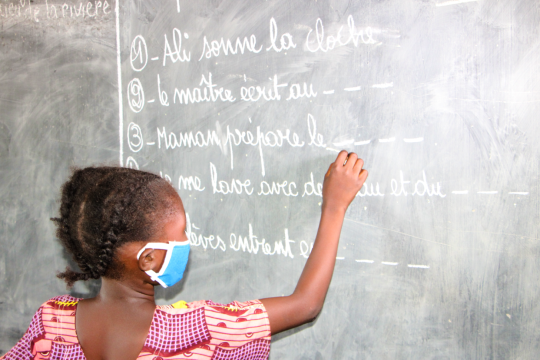 la rivière
① - Ali sonne la cloche
② - le maître écrit au _ _ _ _
③ - Maman prépare le _ _ _ _
me lave avec de au et du _ _ _ _
lèves entrent e _ _ _ _